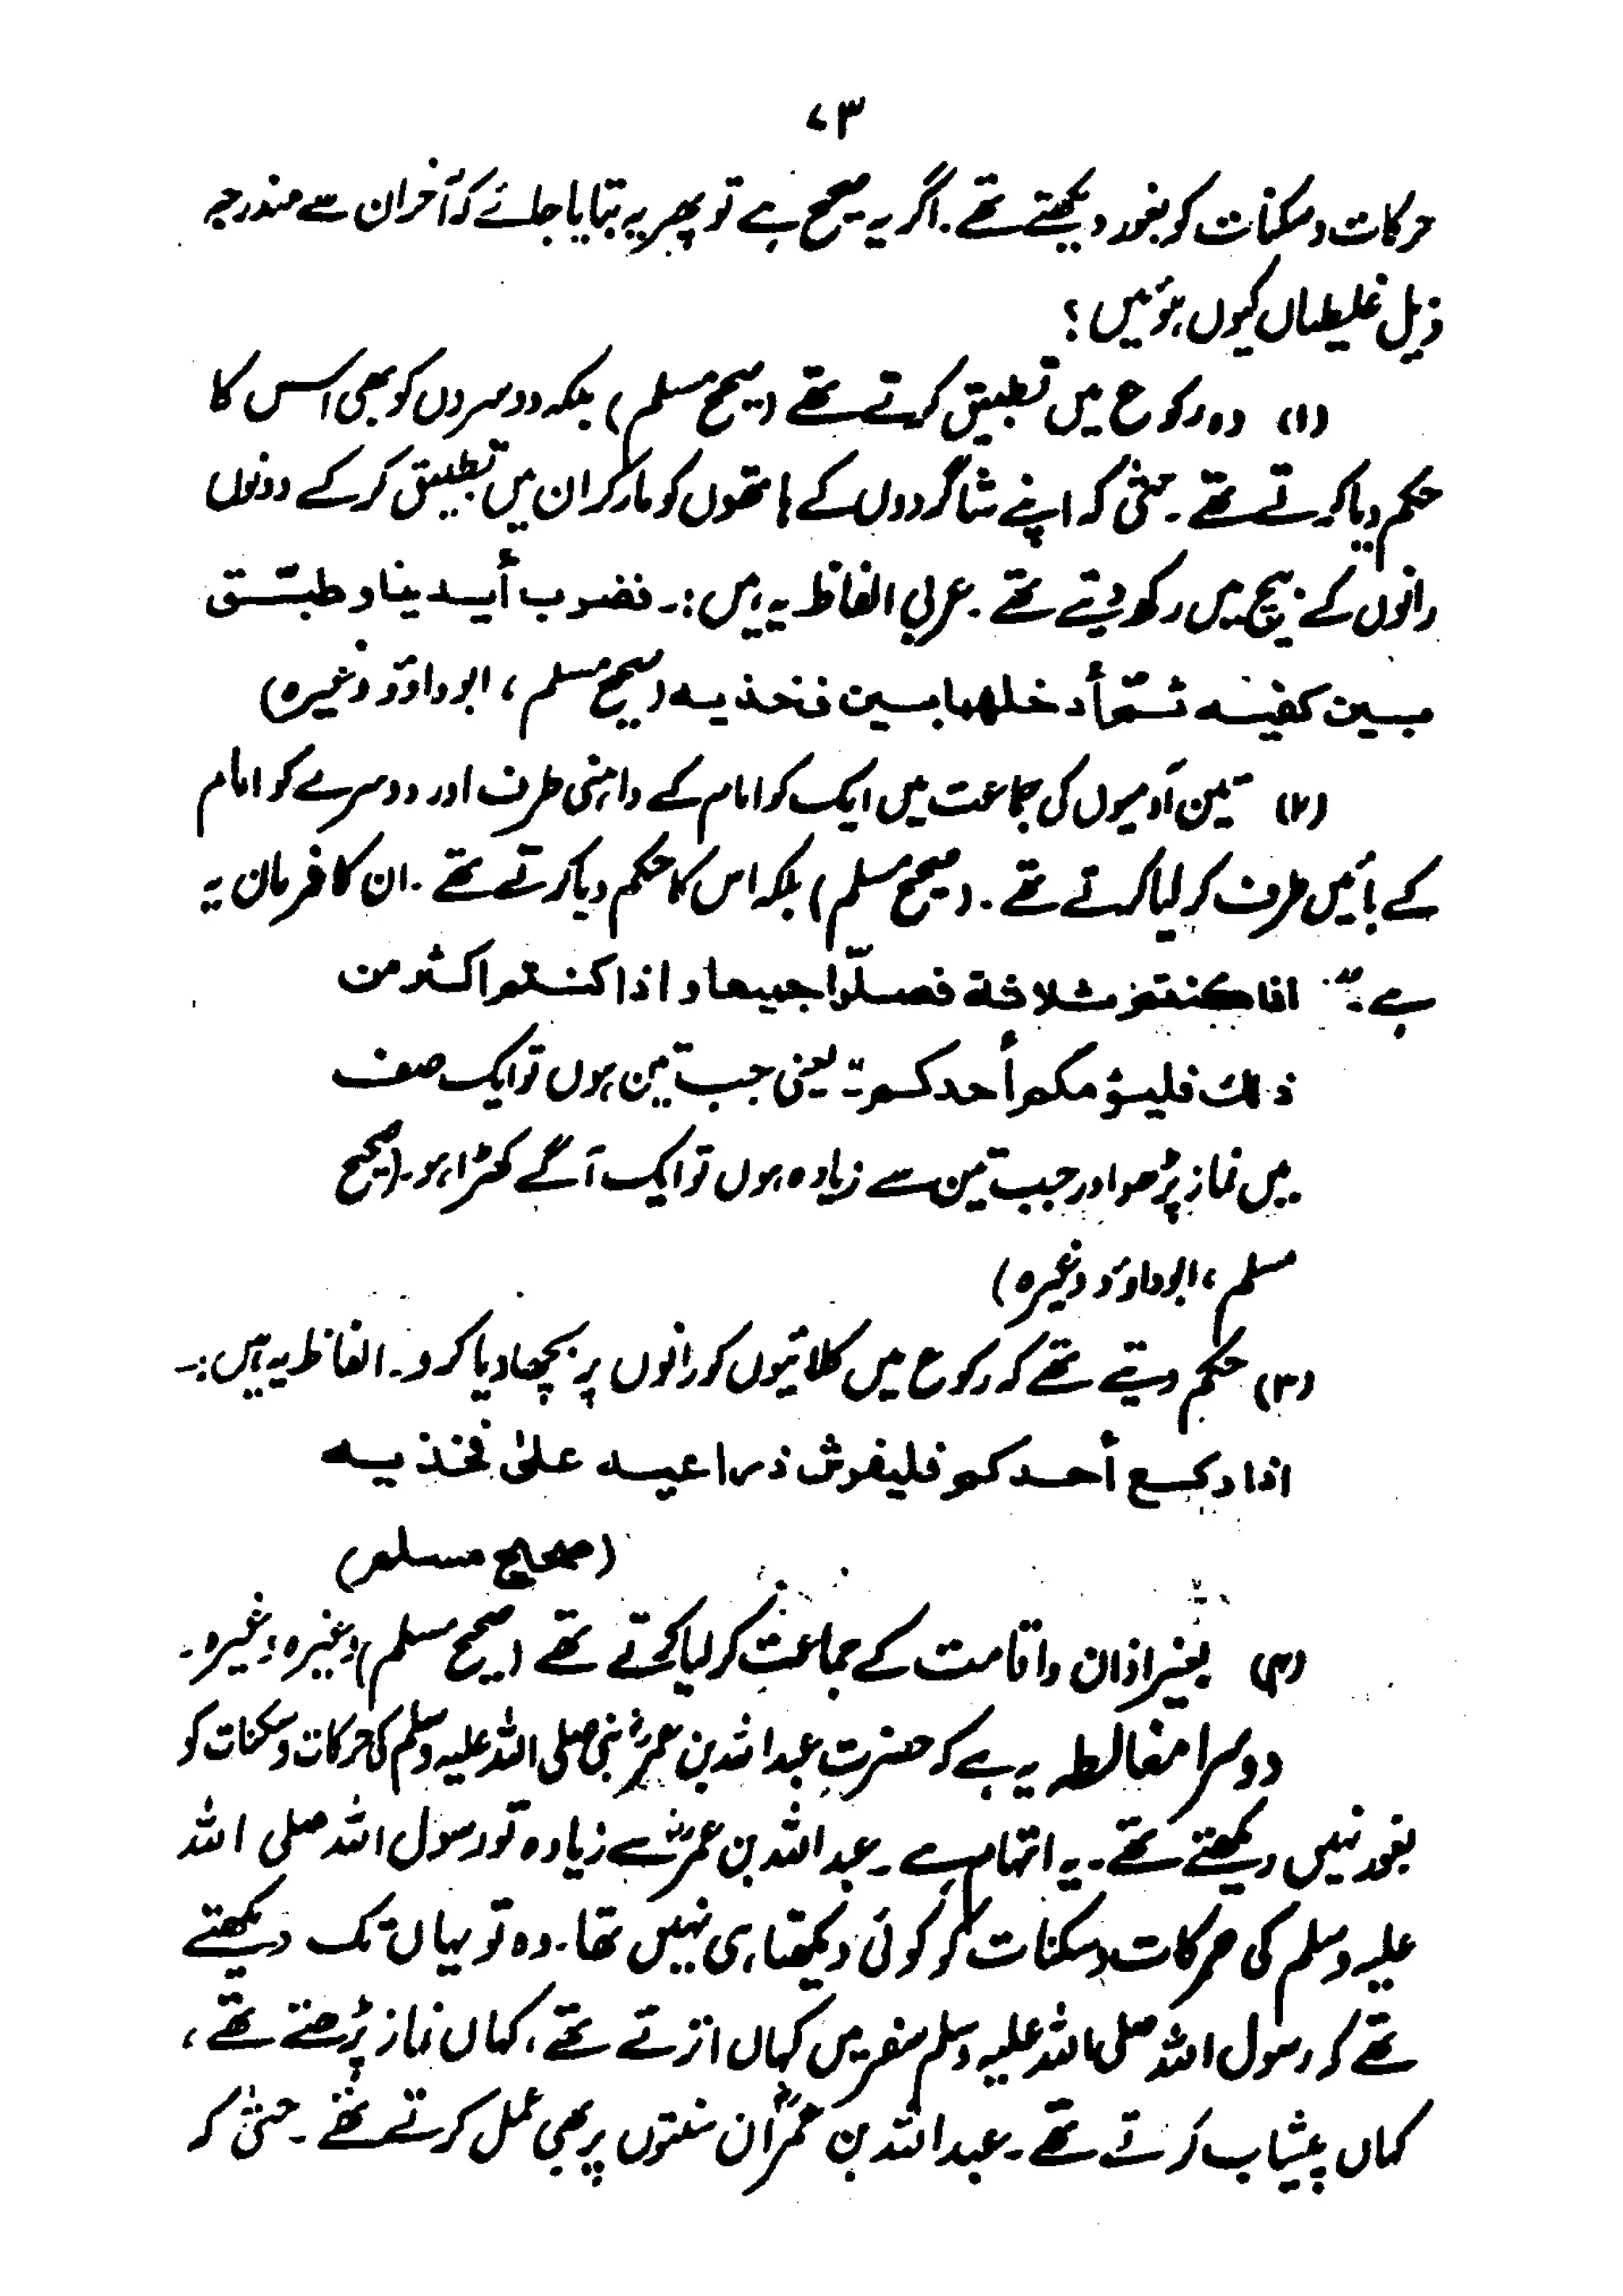 ۷۳
حرکات و سکنات کو بغور دیکھتے تھے۔ اگر یہ صحیح ہے تو پھر یہ بتایا جائے کہ آخر ان سے مندرجہ
ذیل غلیطیاں کیوں ہوئیں؟
(۱) وہ رکوع میں تطبیق کرتے تھے (صحیح مسلم) بلکہ دوسروں کو بھی اس کا
حکم دیا کرتے تھے۔ حتیٰ کہ اپنے شاگردوں کے ہاتھوں کو مار کر ان میں تطبیق کر کے دونوں
رانوں کے بیچ میں رکھ دیتے تھے۔ عربی الفاظ یہ ہیں:۔ فضرب أیدینا و طبّق
بین کفیه ثمّ أدخلهما بین فخذیه (صحیح مسلم، ابوداؤد وغیرہ)
(۲) تین آدمیوں کی جماعت میں ایک کو امام کے داہنی طرف اور دوسرے کو امام
کے بائیں طرف کر لیا کرتے تھے۔ (صحیح مسلم) بلکہ اس کا حکم دیا کرتے تھے۔ ان کا فرمان یہ
ہے:۔ "اذا کنتم ثلاثة فصلّوا جمیعا و اذا کنتم اکثر من
ذلك فلیؤمکم أحدکم" یعنی جب تین ہوں تو ایک صف
میں نماز پڑھو اور جب تین سے زیادہ ہوں تو ایک آگے کھڑا ہو۔ (صحیح
مسلم، ابوداؤد وغیرہ)
(۳) حکم دیتے تھے کہ رکوع میں کلائیوں کو رانوں پر بچھا دیا کرو۔ الفاظ یہ ہیں:۔
اذا رکع أحدکم فلیفرش ذراعیه علیٰ فخذیه
(صحیح مسلم)
(۴) بغیر اذان و اقامت کے جماعت کر لیا کرتے تھے (صحیح مسلم) وغیرہ وغیرہ۔
دوسرا مغالطہ یہ ہے کہ حضرت عبداللہ بن عمرؓ نبی صلی اللہ علیہ وسلم کی حرکات و سکنات کو
بغور نہیں دیکھتے تھے۔ یہ اتہام ہے۔ عبداللہ بن عمرؓ سے زیادہ تو رسول اللہ صلی اللہ
علیہ وسلم کی حرکات و سکنات کو کوئی دیکھتا ہی نہیں تھا۔ وہ تو یہاں تک دیکھتے
تھے کہ رسول اللہ صلی اللہ علیہ وسلم سفر میں کہاں اترتے تھے، کہاں نماز پڑھتے تھے،
کہاں پیشاب کرتے تھے۔ عبداللہ بن عمرؓ ان سنتوں پر بھی عمل کرتے تھے۔ حتیٰ کہ